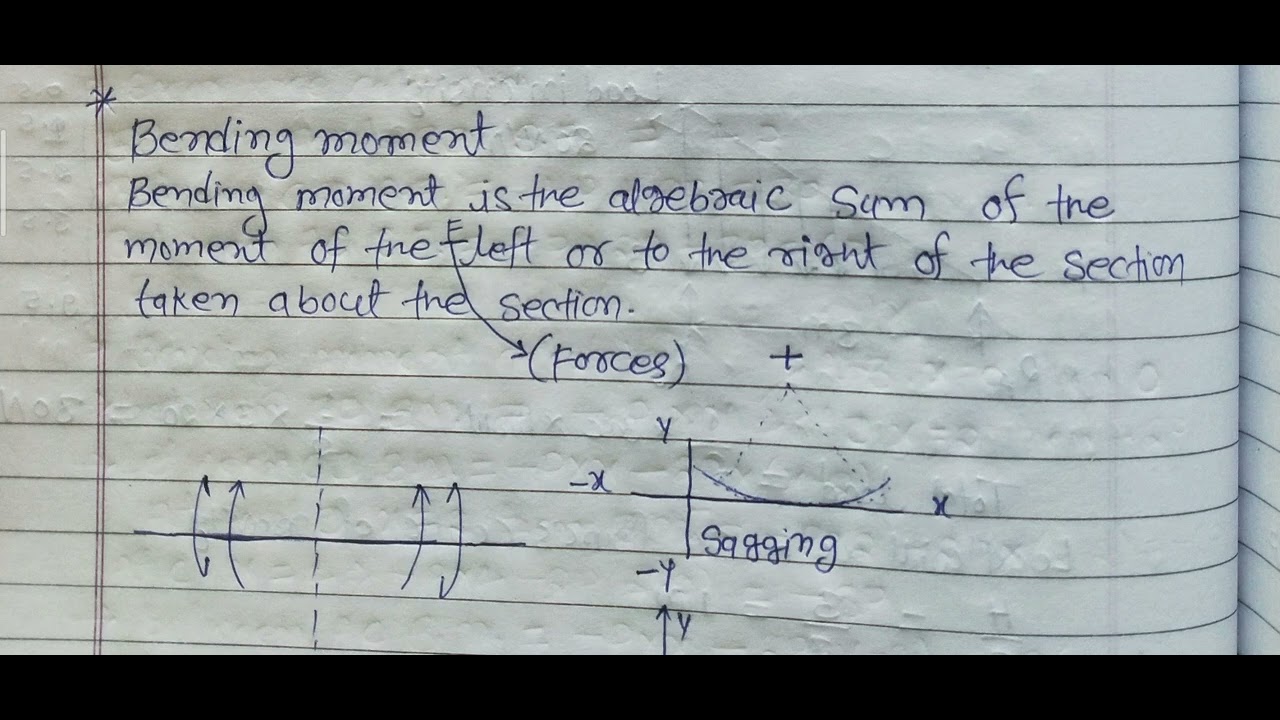 *
Bending moment
Bending moment is the algebraic sum of the
moment of the F left or to the right of the section
taken about the section.
(Forces) +
Y
-x x
Sagging
-Y
Y